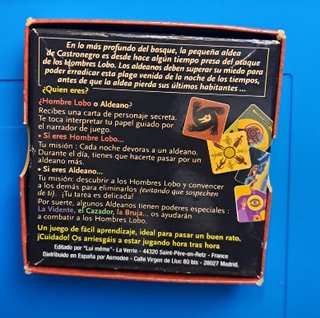 En lo más profundo del bosque, la pequeña aldea
de Castronegro es desde hace algún tiempo presa del ataque
de los Hombres Lobo. Los aldeanos deben superar su miedo para
poder erradicar esta plaga venida de la noche de los tiempos,
antes de que la aldea pierda sus últimos habitantes ...
¿Quien eres?
¿Hombre Lobo o Aldeano?
Recibes una carta de personaje secreta.
Te toca interpretar tu papel guiado por
el narrador de juego.
• Si eres Hombre Lobo...
Tu misión : Cada noche devoras a un aldeano.
Durante el día, tienes que hacerte pasar por un
aldeano más.
• Si eres Aldeano...
Tu misión: descubrir a los Hombres Lobo y convencer
a los demás para eliminarlos (evitando que sospechen
de ti). ¡Tu tarea es delicada!
Por suerte, algunos Aldeanos tienen poderes especiales :
La Vidente, el Cazador, la Bruja... os ayudarán
a combatir a los Hombres Lobo.
Un juego de fácil aprendizaje, ideal para pasar un buen rato.
¡Cuidado! Os arriesgáis a estar jugando hora tras hora
Editado por "Lui même" - La Verrie - 44320 Saint-Père-en-Retz - France
Distribuido en España por Asmodee - Calle Virgen de Lluc 80 bis - 28027 Madrid.